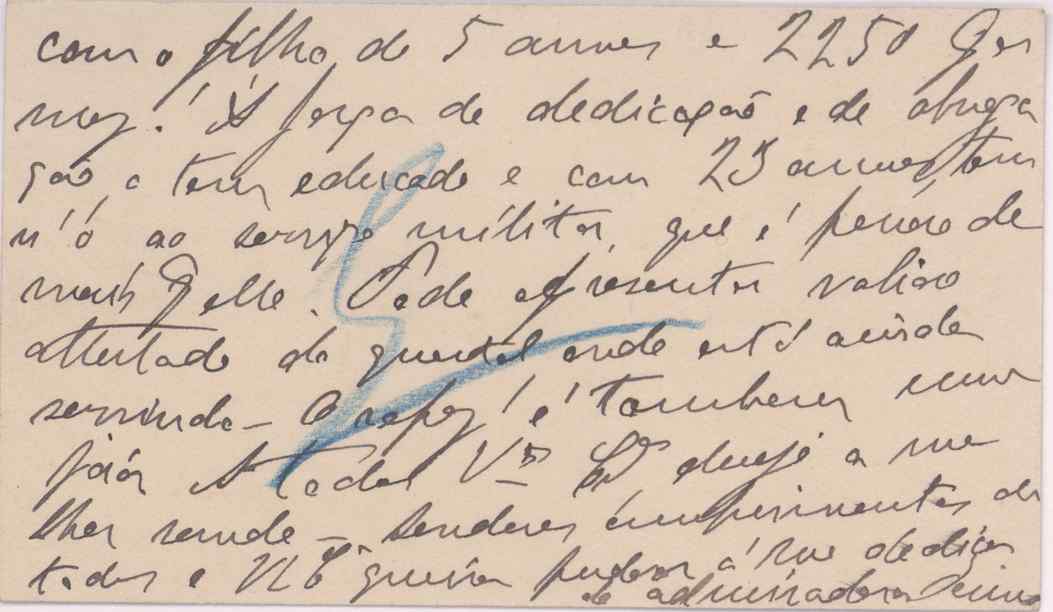 com o filho de 5 annos e 2250 por
mez! Á força de dedicação e de abnega
ção o tem educado e com 23 annos tem
n'ó ao serviço militar, que é penoso de
mais p elle. Pode apresentar valioso
attestado do quartel onde está ainda
servindo – O rapaz! é tambem uma
joia A todas V.as Ex.as desejo a me
lhor saude – senhores cumprimentos de
todos e V. Ex.ª queira perdoar á sua dedica
admiradora